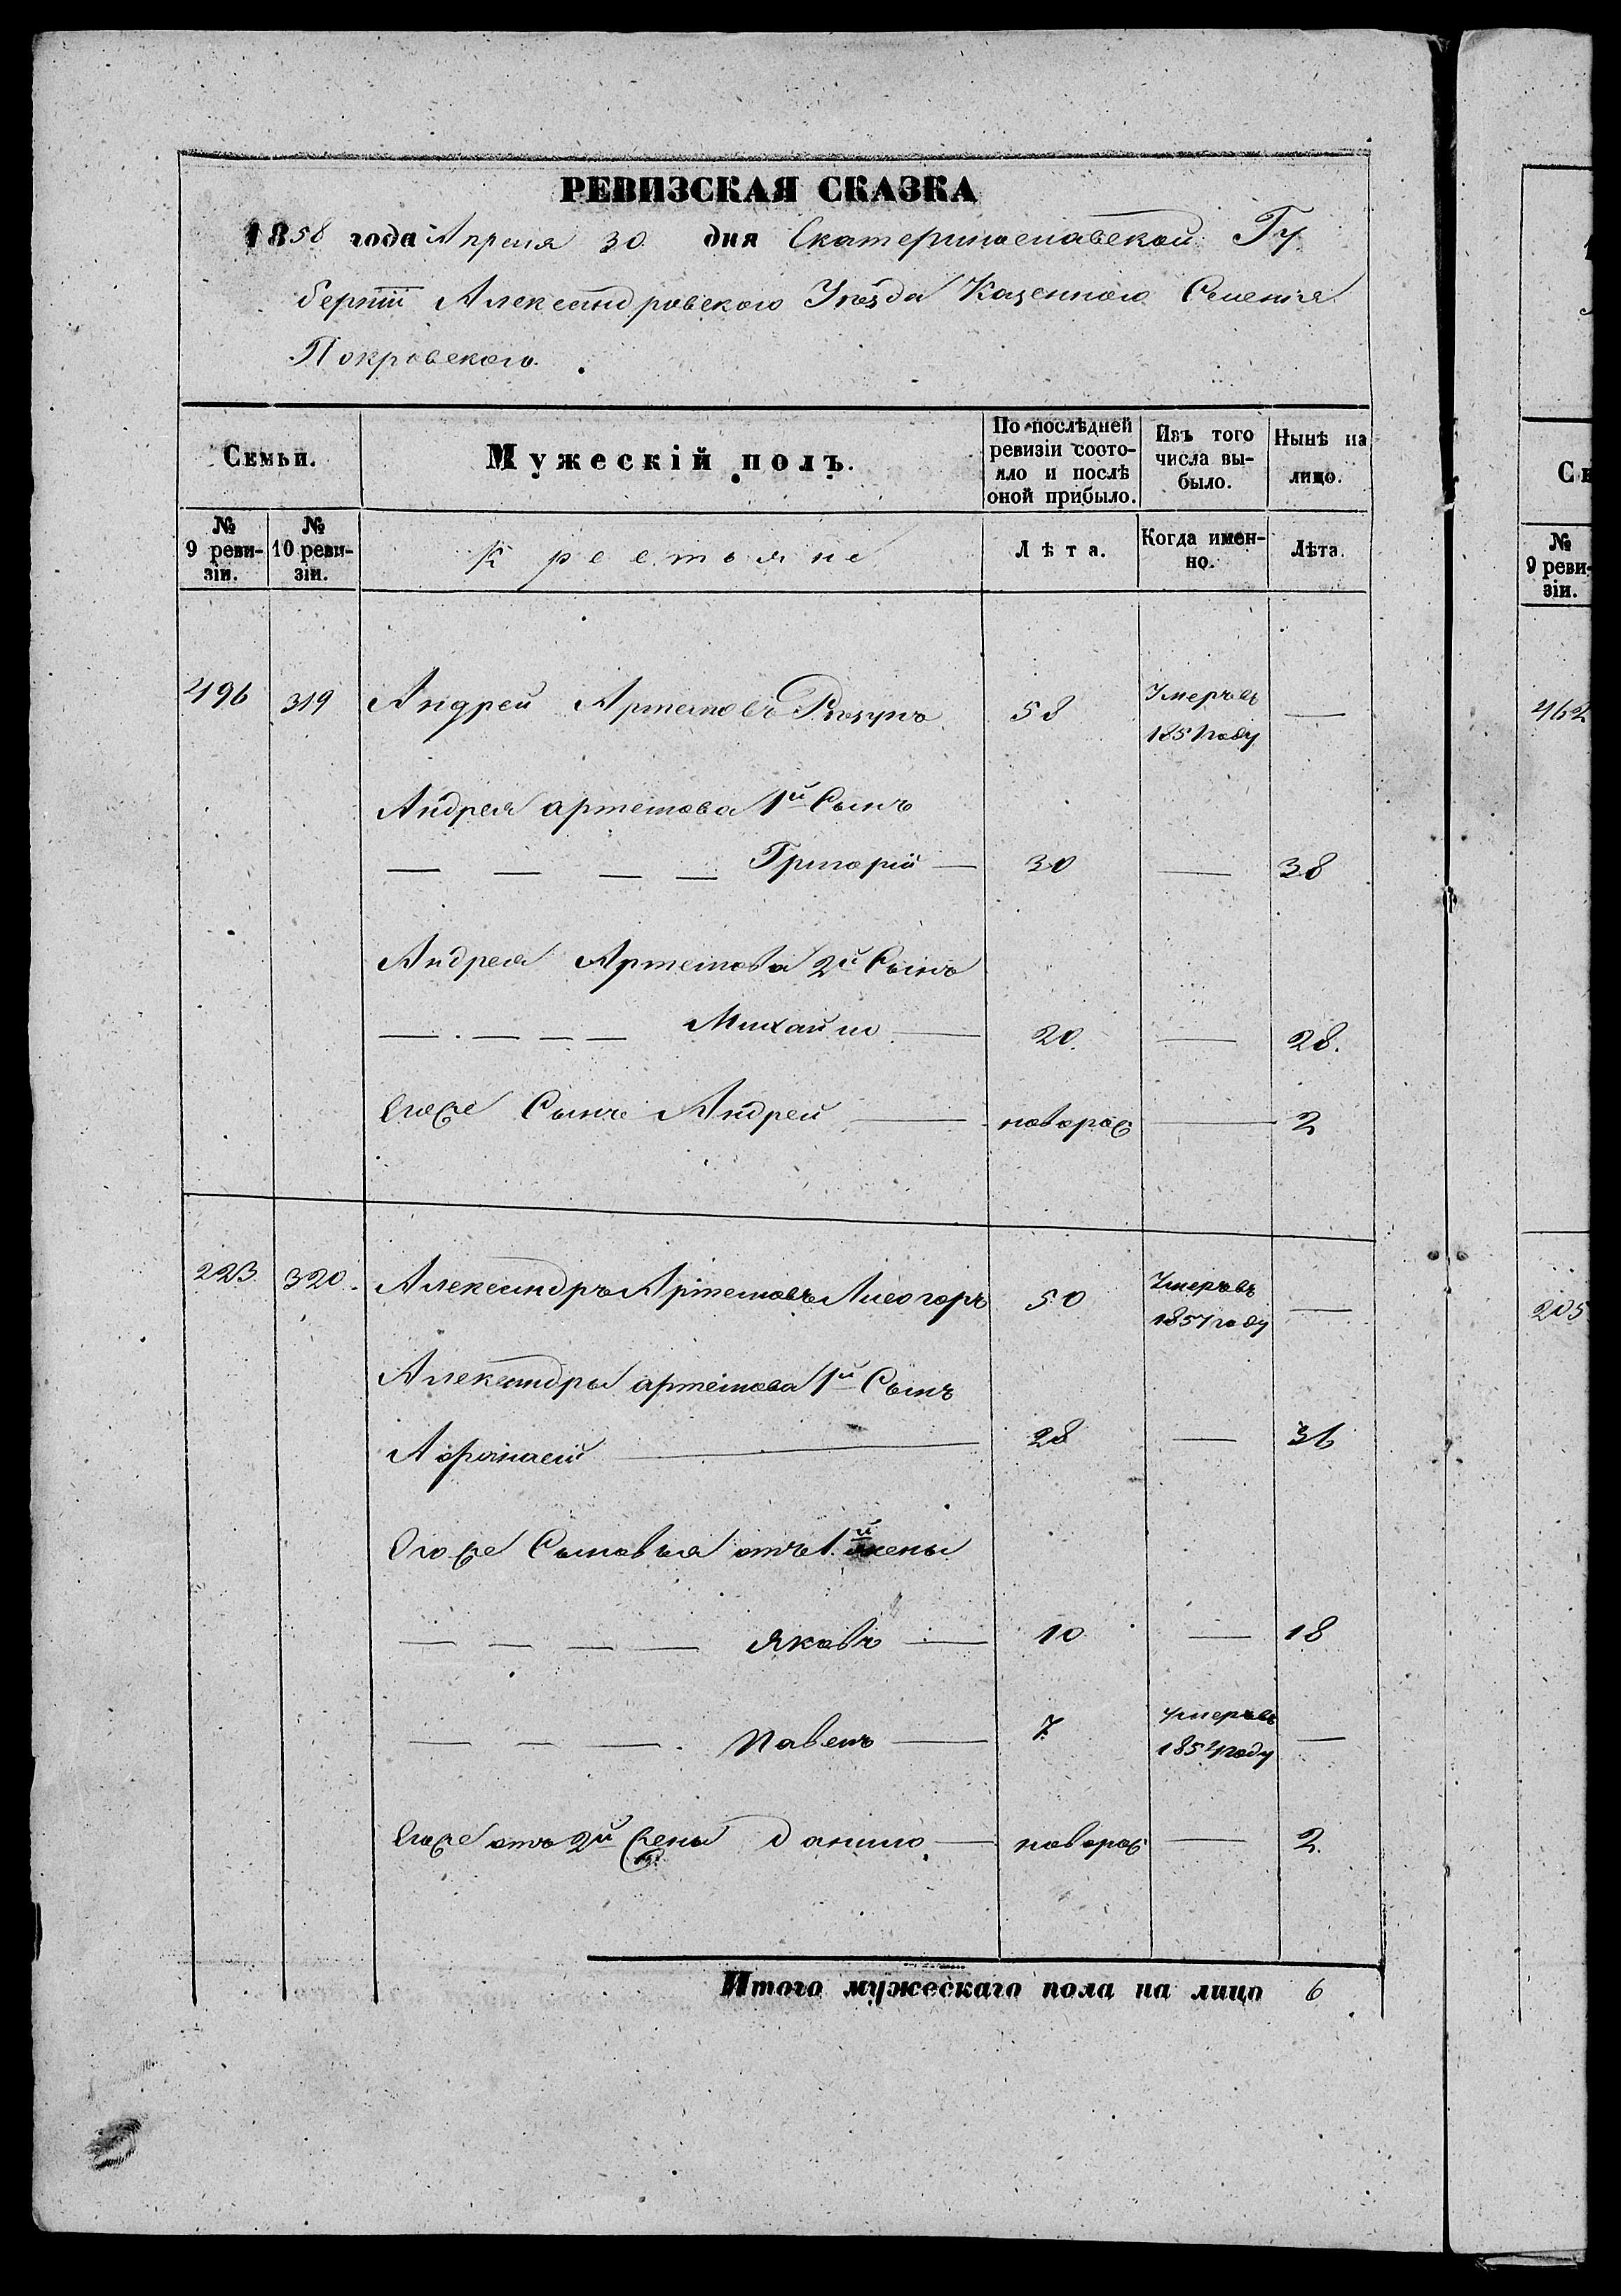 РЕВИЗСКАЯ СКАЗКА
1858 года Апреля 30 дня Екатеринославской Гу
берніи Александровского Уѣзда Казенного Селенія
Покровского.
Семьи.
Мужескій полъ.
По послѣдней ревизіи состо-
яло и послѣ оной прибыло.
Изъ того числа вы-
было.
Нынѣ на лицо.
№ 9 реви-
зіи.
№ 10 реви-
зіи.
Крестьяне
Лѣта.
Когда имен-
но.
Лѣта.
496 319 Андрей Артемовъ 58 Умеръ въ —
1851 году
Андрея артемова 1й Сынъ
— — — — Григорій — 30 — 38
Андрея Артемова 2й Сынъ
— — — — Михайло — 20 — 28.
Егоже Сынъ Андрей — новорож — 2
223 320 Александръ Артемовъ Лисогоръ 50 Умеръ въ —
1857 году
Александра артемова 1й Сынъ
Афанасій — 28 — 36
Егоже Сыновья отъ 1й жены
— — — — Яковъ — 10 — 18
— — — Павелъ — 7. Умеръ въ —
185 году
Егоже отъ 2й жены Данило — новорож — 2.
Итого мужескаго пола на лицо 6
Се
№
9 реви-
зіи.
462
205